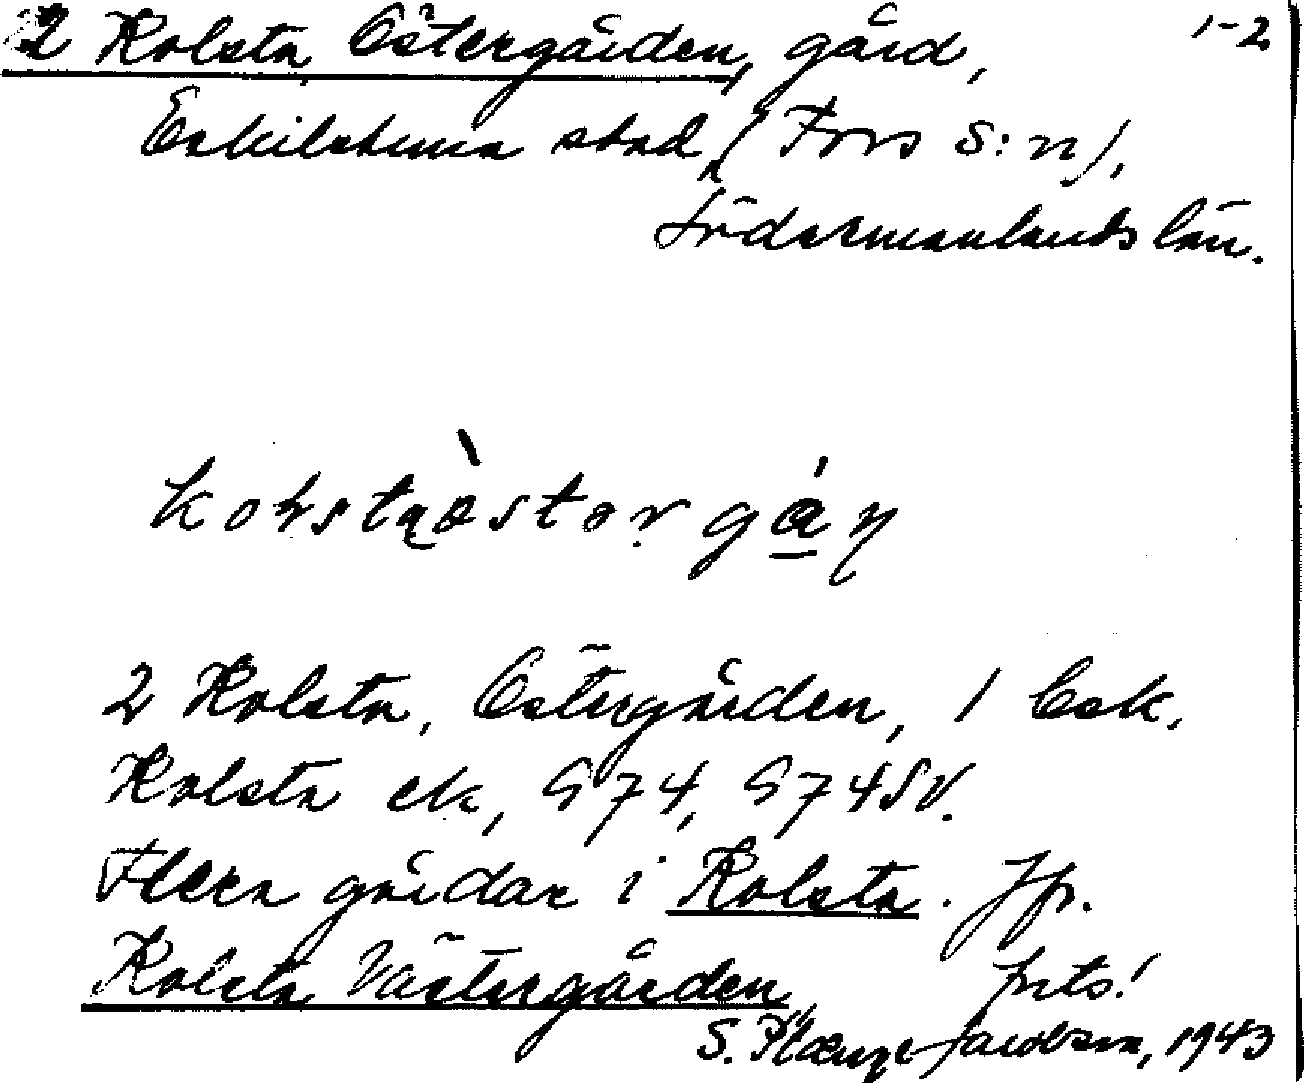 2 Kolsta, Östergården, gård, 1-2
Eskilstuna stad, (Fors s:n),
Södermanlands län.
2 Kolsta, Östergården, 1 bsk.
Kolsta ek, G74, G74SV.
Flera gårdar i Kolsta. Jfr.
Kolsta Västergården forts!
S. Jacobson, 1943